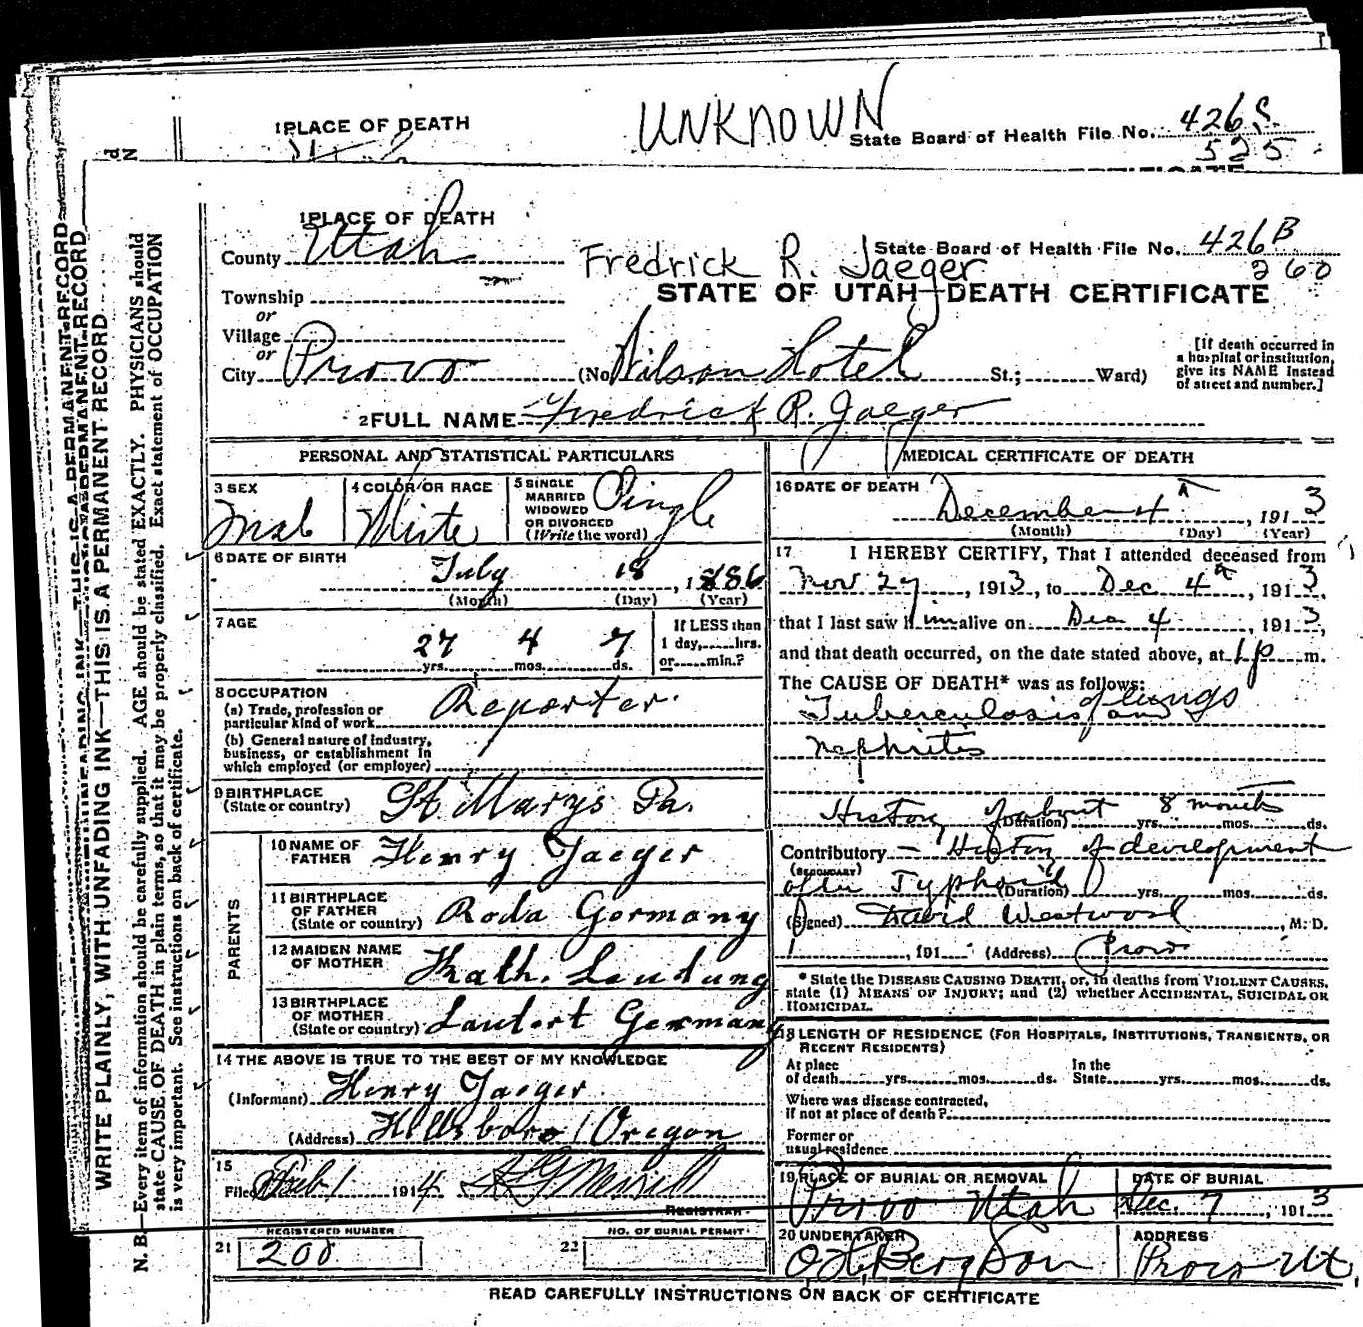 UNKNOWN
1 PLACE OF DEATH
State Board of Health File No. 426
525
1 PLACE OF DEATH
County Utah
State Board of Health File No. 426B
Fredrick R. Jaeger
260
Township
STATE OF UTAH—DEATH CERTIFICATE
or
Village
or
City Provo (No. Wilson Hotel St.; Ward)
[If death occurred in
a hospital or institution,
give its NAME instead
of street and number.]
2 FULL NAME Fredrick R. Jaeger
PERSONAL AND STATISTICAL PARTICULARS
3 SEX
4 COLOR OR RACE
5 SINGLE
MARRIED
WIDOWED
OR DIVORCED
(Write the word)
Single
6 DATE OF BIRTH
July 18, 1886
(Month) (Day) (Year)
7 AGE
27 yrs. 4 mos. ds.
If LESS than
1 day, hrs.
or min.?
8 OCCUPATION
(a) Trade, profession or
particular kind of work Reporter.
(b) General nature of industry,
business, or establishment in
which employed (or employer)
9 BIRTHPLACE
(State or country) St. Marys Pa.
PARENTS
10 NAME OF
FATHER Henry Jaeger
11 BIRTHPLACE
OF FATHER
(State or country) Roda Germany
12 MAIDEN NAME
OF MOTHER Kath.
13 BIRTHPLACE
OF MOTHER
(State or country) German
14 THE ABOVE IS TRUE TO THE BEST OF MY KNOWLEDGE
(Informant) Henry Jaeger
(Address) Hillsboro, Oregon
15
Filed Feb 1 1914. Merrill
REGISTRAR
REGISTERED NUMBER
21 200
NO. OF BURIAL PERMIT
22
MEDICAL CERTIFICATE OF DEATH
16 DATE OF DEATH
December 4, 1913
(Month) (Day) (Year)
17 I HEREBY CERTIFY, That I attended deceased from
Nov 27, 1913, to Dec 4, 1913,
that I last saw him alive on Dec 4, 1913,
and that death occurred, on the date stated above, at 1 p m.
The CAUSE OF DEATH* was as follows:
Tuberculosis of lungs and
nephritis
History of about 8 months
(Duration) yrs. mos. ds.
Contributory — History of development
(SECONDARY)
after Typhoid (Duration) yrs. mos. ds.
(Signed) David Westwood, M. D.
, 191 (Address) Provo
* State the DISEASE CAUSING DEATH, or, in deaths from VIOLENT CAUSES,
state (1) MEANS OF INJURY; and (2) whether ACCIDENTAL, SUICIDAL OR
HOMICIDAL.
18 LENGTH OF RESIDENCE (FOR HOSPITALS, INSTITUTIONS, TRANSIENTS, OR
RECENT RESIDENTS)
At place
of death yrs. mos. ds.
In the
State yrs. mos. ds.
Where was disease contracted,
if not at place of death?
Former or
usual residence
19 PLACE OF BURIAL OR REMOVAL
Provo Utah
DATE OF BURIAL
Dec. 7, 1913
20 UNDERTAKER
ADDRESS
Provo Ut.
READ CAREFULLY INSTRUCTIONS ON BACK OF CERTIFICATE
WRITE PLAINLY, WITH UNFADING INK—THIS IS A PERMANENT RECORD
N. B.—Every item of information should be carefully supplied. AGE should be stated EXACTLY. PHYSICIANS should
state CAUSE OF DEATH in plain terms, so that it may be properly classified. Exact statement of OCCUPATION
is very important. See instructions on back of certificate.